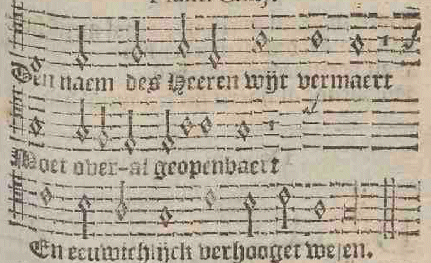 Den naem des Heeren wijt vermaert
Moet over-al geopenbaert
En eeuwichlijck verhooget wesen.